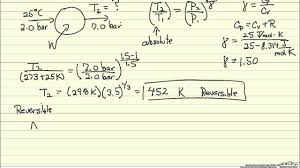 25°C T₂ = ?
2.0 bar 7.0 bar
W
(T₂/T₁) = (P₂/P₁)
absolute
γ = Cp/Cv
Cp = Cv + R
γ = 25 J/mol·K / 25-8.314 J/mol·K
γ = 1.50
T₂/(273+25K) = (7.0 bar/2.0 bar)^(1.5-1/1.5)
T₂ = (298 K)(3.5)^(1/3) = 452 K Reversible
Reversible